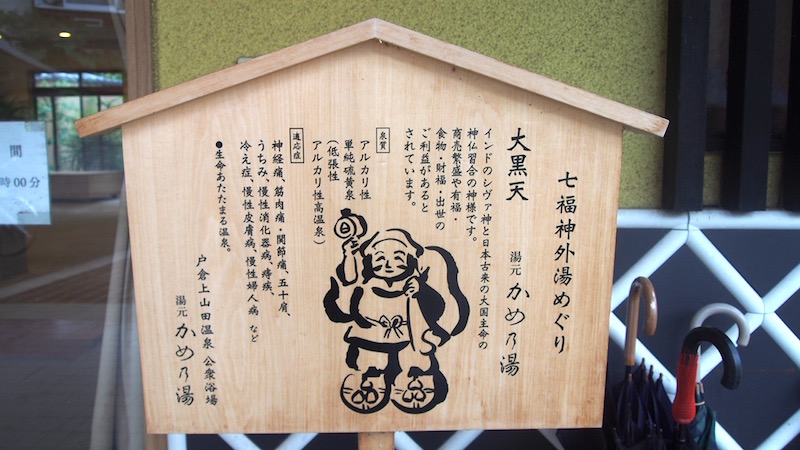 七福神外湯めぐり
大黒天
湯元 かめ乃湯
インドのシヴァ神と日本古来の大国主命の
神仏習合の神様です。
商売繁盛や有福・
食物・財福・出世の
ご利益があると
されています。
泉質
アルカリ性
単純硫黄泉
(低張性
アルカリ性高温泉)
適応症
神経痛、筋肉痛・関節痛、五十肩、
うちみ、慢性消化器病、痔疾、
冷え症、慢性皮膚病、慢性婦人病 など
●生命あたたまる温泉。
戸倉上山田温泉 公衆浴場
湯元 かめ乃湯
間
時00分